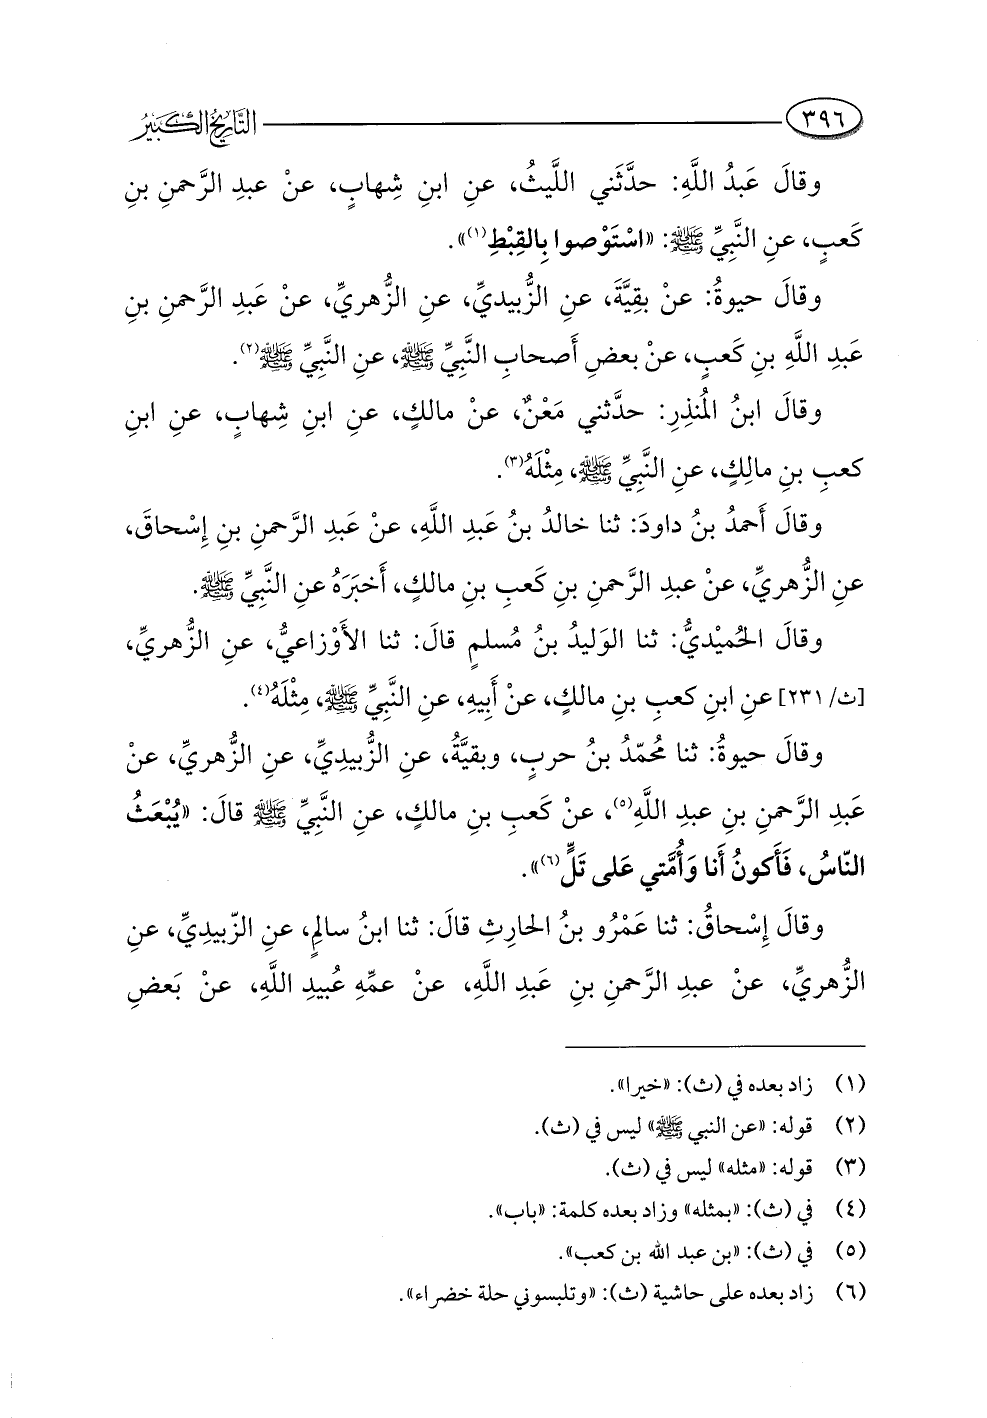 ٣٩٦ التَّارِيخُ الكَبِيرُ
وقالَ عَبدُ اللَّهِ: حدَّثَني اللَّيثُ، عنِ ابنِ شِهابٍ، عنْ عبدِ الرَّحمنِ بنِ
كَعبٍ، عنِ النَّبِيِّ ﷺ: «اسْتَوْصوا بِالقِبْطِ(١)».
وقالَ حيوةُ: عنْ بقِيَّةَ، عنِ الزُّبيديِّ، عنِ الزُّهريِّ، عنْ عَبدِ الرَّحمنِ بنِ
عَبدِ اللَّهِ بنِ كَعبٍ، عنْ بعضِ أَصحابِ النَّبِيِّ ﷺ، عنِ النَّبِيِّ ﷺ(٢).
وقالَ ابنُ المُنذِرِ: حدَّثني مَعْنٌ، عنْ مالكٍ، عنِ ابنِ شِهابٍ، عنِ ابنِ
كعبِ بنِ مالِكٍ، عنِ النَّبِيِّ ﷺ، مِثْلَهُ(٣).
وقالَ أَحمدُ بنُ داودَ: ثنا خالدُ بنُ عَبدِ اللَّهِ، عنْ عَبدِ الرَّحمنِ بنِ إِسْحاقَ،
عنِ الزُّهريِّ، عنْ عبدِ الرَّحمنِ بنِ كَعبِ بنِ مالكٍ، أَخبَرَهُ عنِ النَّبِيِّ ﷺ.
وقالَ الحُميْديُّ: ثنا الوَليدُ بنُ مُسلمٍ قالَ: ثنا الأَوْزاعيُّ، عنِ الزُّهريِّ،
[ث/ ٢٣١] عنِ ابنِ كعبِ بنِ مالكٍ، عنْ أَبيهِ، عنِ النَّبِيِّ ﷺ، مِثْلَهُ(٤).
وقالَ حيوةُ: ثنا مُحمّدُ بنُ حربٍ، وبقيَّةُ، عنِ الزُّبيدِيِّ، عنِ الزُّهريِّ، عنْ
عَبدِ الرَّحمنِ بنِ عبدِ اللَّهِ(٥)، عنْ كَعبِ بنِ مالكٍ، عنِ النَّبِيِّ ﷺ قالَ: «يُبْعَثُ
النّاسُ، فَأَكونُ أَنا وَأُمَّتي عَلى تَلٍّ(٦)».
وقالَ إِسْحاقُ: ثنا عَمْرُو بنُ الحارِثِ قالَ: ثنا ابنُ سالمٍ، عنِ الزّبيدِيِّ، عنِ
الزُّهريِّ، عنْ عبدِ الرَّحمنِ بنِ عَبدِ اللَّهِ، عنْ عمِّهِ عُبيدِ اللَّهِ، عنْ بَعضِ
(١) زاد بعده في (ث): «خيرا».
(٢) قوله: «عن النبي ﷺ» ليس في (ث).
(٣) قوله: «مثله» ليس في (ث).
(٤) في (ث): «بمثله» وزاد بعده كلمة: «باب».
(٥) في (ث): «بن عبد الله بن كعب».
(٦) زاد بعده على حاشية (ث): «وتلبسوني حلة خضراء».